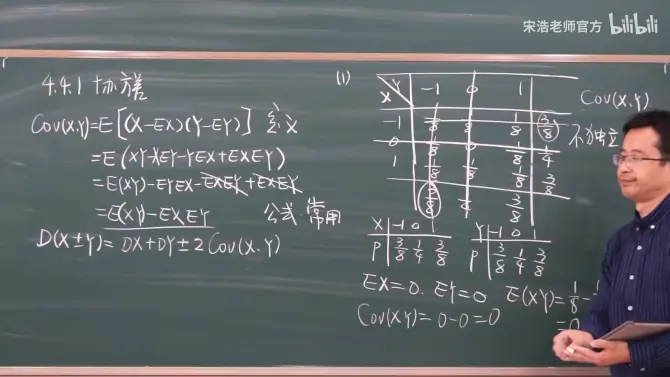 宋浩老师官方 bilibili
4.4.1 协方差
Cov(X,Y)=E[(X-EX)(Y-EY)] 定义
=E(XY-XEY-YEX+EXEY)
=E(XY)-EYEX-EXEY+EXEY
=E(XY)-EXEY 公式 常用
D(X±Y)=DX+DY±2Cov(X,Y)
(1)
X Y -1 0 1
-1 1/8 1/8 1/8 3/8
0 1/8 0 1/8 1/4
1 1/8 1/8 1/8 3/8
3/8 3/8
Cov(X,Y)
不独立
X -1 0 1
P 3/8 1/4 3/8
Y -1 0 1
P 3/8 1/4 3/8
EX=0. EY=0 E(XY)=1/8-
=0
Cov(XY)=0-0=0